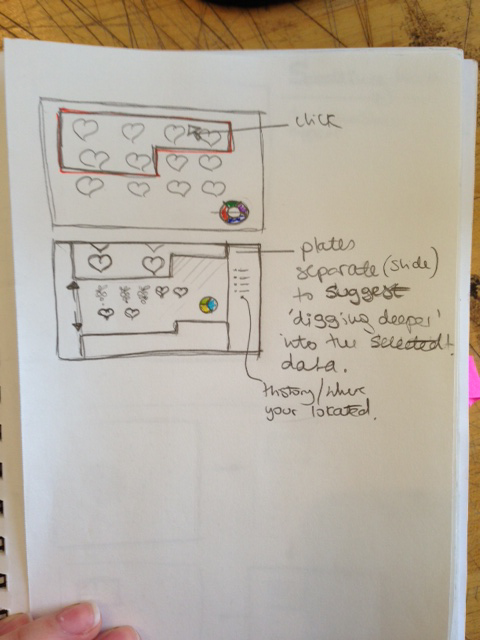 click
plates
separate (slide)
to suggest
'digging deeper'
into the selected
data.
History/where
your located.